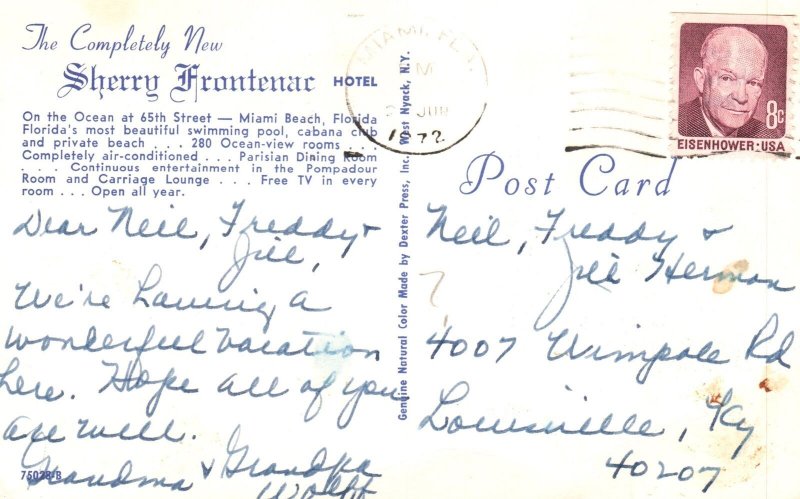 The Completely New
Sherry Frontenac HOTEL
On the Ocean at 65th Street — Miami Beach, Florida
Florida's most beautiful swimming pool, cabana club
and private beach . . . 280 Ocean-view rooms . . .
Completely air-conditioned . . . Parisian Dining Room
. . . Continuous entertainment in the Pompadour
Room and Carriage Lounge . . . Free TV in every
room . . . Open all year.
Dear Neil, Freddy &
Jill,
We're having a
wonderful vacation
here. Hope all of you
are well.
Grandma & Grandpa
Wolff
75028-B
Genuine Natural Color Made by Dexter Press, Inc. West Nyack, N.Y.
MIAMI, FLA.
M
JUN
1972
8c
EISENHOWER·USA
Post Card
Neil, Freddy &
Jill Herman
4007 Wimpole Rd
Louisville, Ky
40207